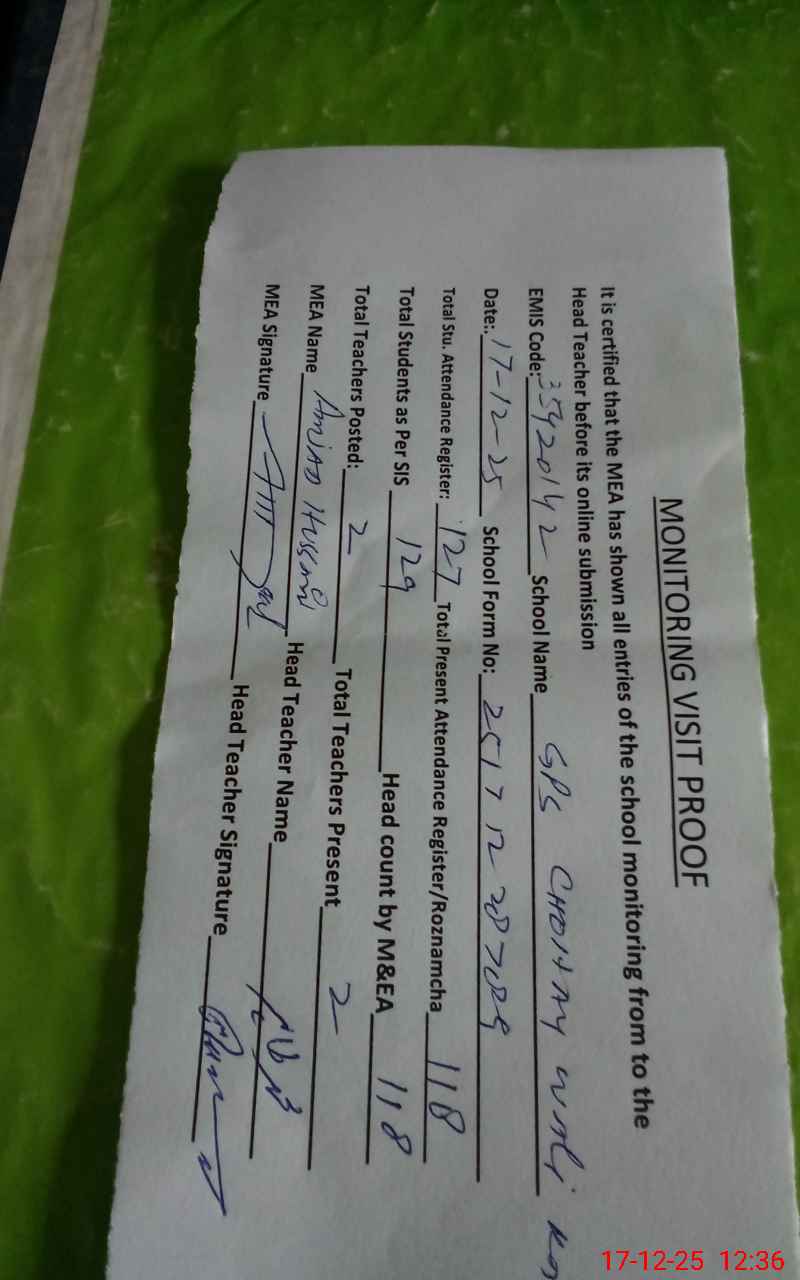 MONITORING VISIT PROOF
It is certified that the MEA has shown all entries of the school monitoring from to the
Head Teacher before its online submission
EMIS Code: 35420142 School Name GPS CHOHAY Wali
Date:. 17-12-25 School Form No: 2517122087089
Total Stu. Attendance Register: 127 Total Present Attendance Register/Roznamcha 118
Total Students as Per SIS 129 Head count by M&EA 118
Total Teachers Posted: 2 Total Teachers Present 2
MEA Name AMJAD HUSSAIN Head Teacher Name
MEA Signature Head Teacher Signature
17-12-25 12:36